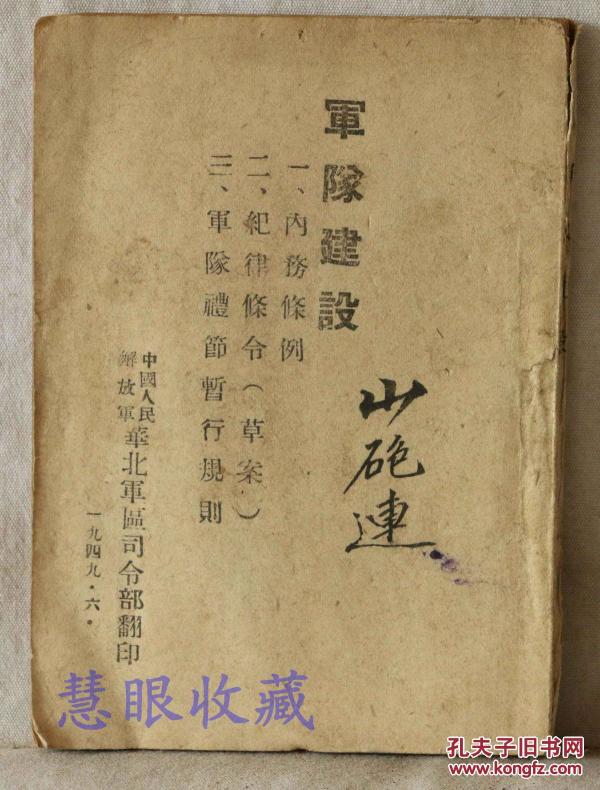 軍隊建設
一、內務條例
二、紀律條令（草案）
三、軍隊禮節暫行規則
中國人民解放軍華北軍區司令部翻印
一九四九·六·
山砲連
慧眼收藏
孔夫子旧书网
www.kongfz.com